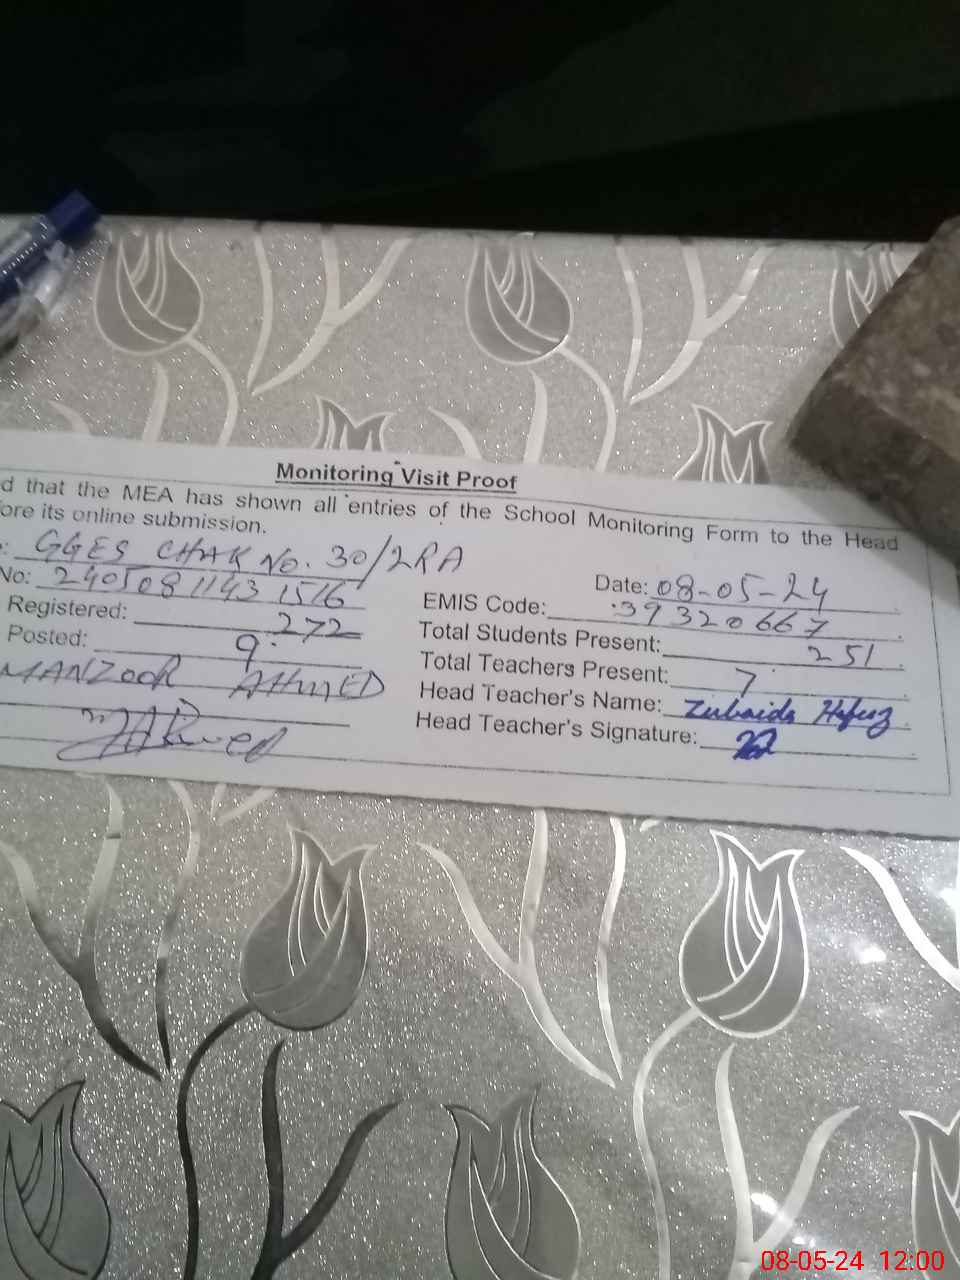 Monitoring Visit Proof
d that the MEA has shown all entries of the School Monitoring Form to the Head
fore its online submission.
: GGES CHAK No. 30/2RA
Date: 08-05-24
No: 24050811431516
EMIS Code: 39320667
Registered: 272
Total Students Present: 251
Posted: 9
Total Teachers Present: 7
MANZOOR AHMED
Head Teacher's Name: Zubaida Hafeez
Head Teacher's Signature:
08-05-24 12:00